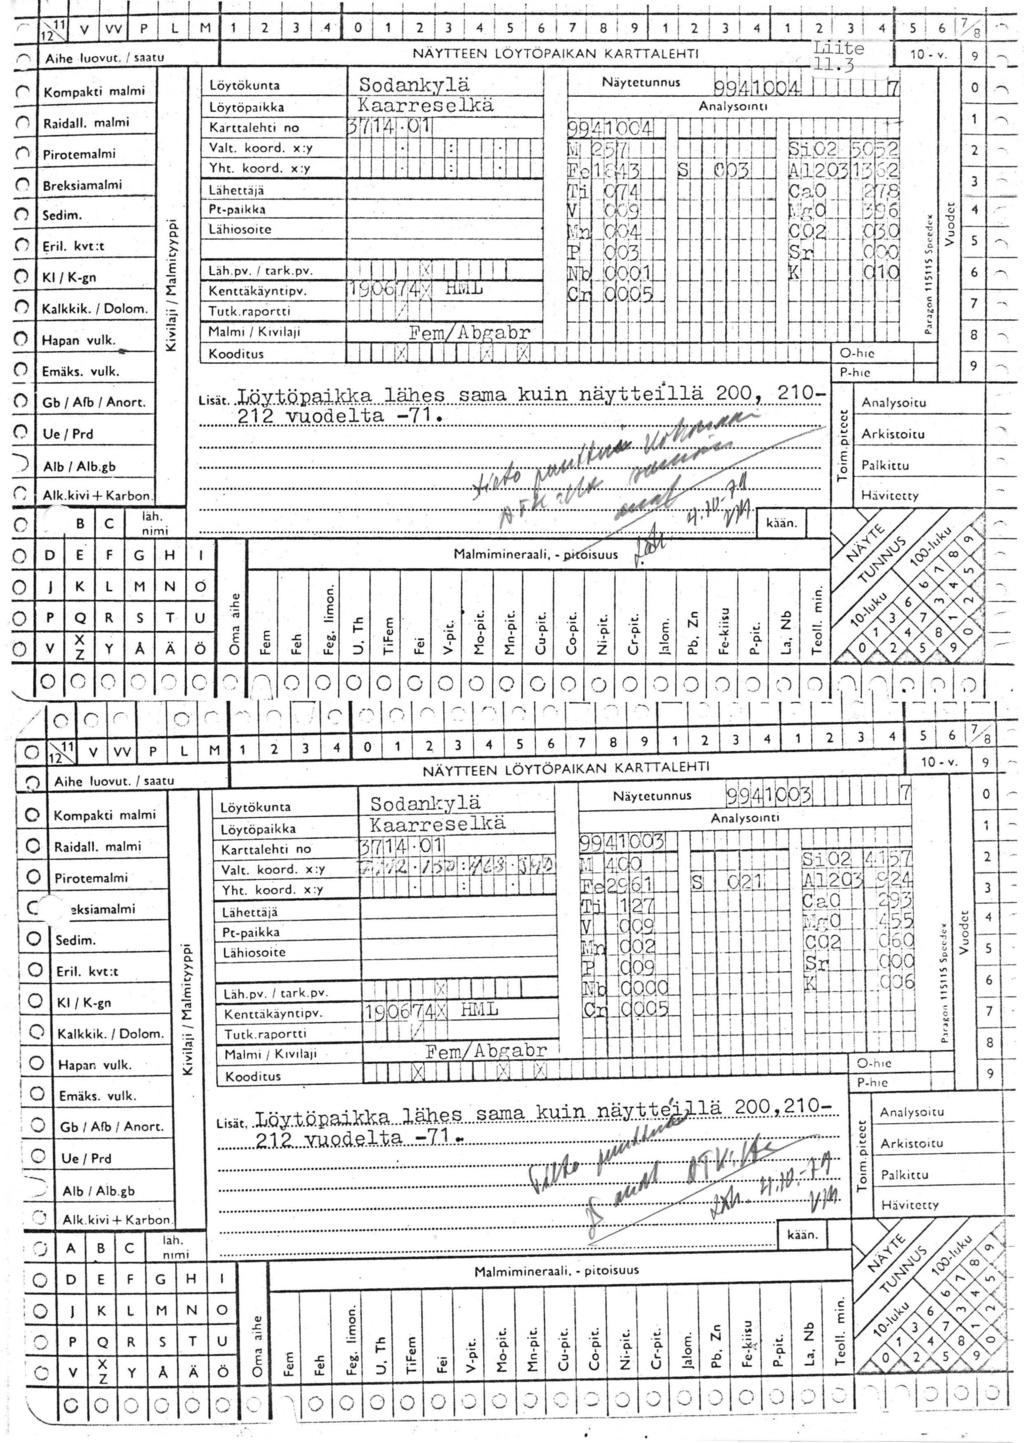 11 12 V VV P L M 1 2 3 4 0 1 2 3 4 5 6 7 8 9 1 2 3 4 1 2 3 4 5 6 7/8
Aihe luovut. / saatu NÄYTTEEN LÖYTÖPAIKAN KARTTALEHTI Liite 11.3 10 - v. 9
Kompakti malmi
Raidall. malmi
Pirotemalmi
Breksiamalmi
Sedim.
Eril. kvt:t
Kl / K-gn
Kalkkik. / Dolom.
Hapan vulk.
Emäks. vulk.
Gb / Afb / Anort.
Ue / Prd
Alb / Alb.gb
Alk.kivi + Karbon.
Kivilaji / Malmityyppi
Löytökunta Sodankylä
Löytöpaikka Kaarreselkä
Karttalehti no 3714 . 01
Valt. koord. x:y
Yht. koord. x:y
Lähettäjä
Pt-paikka
Lähiosoite
Läh.pv. / tark.pv. X
Kenttäkäyntipv. 190674X HML
Tutk.raportti /
Malmi / Kivilaji Fem/Abgabr
Kooditus X X X
Näytetunnus 9941004 7
Analysointi
9941004
M 257 SiO2 5052
Fe 1843 S 003 Al2O3 1362
Ti 074 CaO 278
V 009 MgO 396
Mn 004 CO2 030
P 003 Sr 000
Nb 0001 K 010
Cr 0005
O-hie
P-hie
Paragon 115115 Speedex
Vuodet
0
1
2
3
4
5
6
7
8
9
Lisät. Löytöpaikka lähes sama kuin näytteillä 200, 210-
212 vuodelta -71.
tieto puuttuu kokonaan
ATK:lta
4.10.-79
VM
kään.
Toim.piteet
Analysoitu
Arkistoitu
Palkittu
Hävitetty
B C läh. nimi
D E F G H I
J K L M N O
P Q R S T U
V X Z Y Å Ä Ö
Malmimineraali, - pitoisuus
Oma aihe Fem Feh Feg. limon. U, Th TiFem Fei V-pit. Mo-pit. Mn-pit. Cu-pit. Co-pit. Ni-pit. Cr-pit. Jalom. Pb, Zn Fe-kiisu P-pit. La, Nb Teoll. min.
NÄYTE TUNNUS
100-luku
10-luku
0 1 2 3 4 5 6 7 8 9
11 12 V VV P L M 1 2 3 4 0 1 2 3 4 5 6 7 8 9 1 2 3 4 1 2 3 4 5 6 7/8
Aihe luovut. / saatu NÄYTTEEN LÖYTÖPAIKAN KARTTALEHTI 10 - v. 9
Kompakti malmi
Raidall. malmi
Pirotemalmi
eksiamalmi
Sedim.
Eril. kvt:t
Kl / K-gn
Kalkkik. / Dolom.
Hapan vulk.
Emäks. vulk.
Gb / Afb / Anort.
Ue / Prd
Alb / Alb.gb
Alk.kivi + Karbon.
Kivilaji / Malmityyppi
Löytökunta Sodankylä
Löytöpaikka Kaarreselkä
Karttalehti no 3714 . 01
Valt. koord. x:y
Yht. koord. x:y
Lähettäjä
Pt-paikka
Lähiosoite
Läh.pv. / tark.pv. X
Kenttäkäyntipv. 190674X HML
Tutk.raportti /
Malmi / Kivilaji Fem/Abgabr
Kooditus X X X
Näytetunnus 9941003 7
Analysointi
9941003
M 400 SiO2 4157
Fe 2961 S 021 Al2O3 924
Ti 127 CaO 293
V 009 MgO 455
Mn 002 CO2 060
P 009 Sr 000
Nb 0000 K 006
Cr 0005
O-hie
P-hie
Paragon 115115 Speedex
Vuodet
0
1
2
3
4
5
6
7
8
9
Lisät. Löytöpaikka lähes sama kuin näytteillä 200,210-
212 vuodelta -71.
Tieto puuttuu
ATK:lta
4.10.-79
VM
kään.
Toim.piteet
Analysoitu
Arkistoitu
Palkittu
Hävitetty
A B C läh. nimi
D E F G H I
J K L M N O
P Q R S T U
V X Z Y Å Ä Ö
Malmimineraali, - pitoisuus
Oma aihe Fem Feh Feg. limon. U, Th TiFem Fei V-pit. Mo-pit. Mn-pit. Cu-pit. Co-pit. Ni-pit. Cr-pit. Jalom. Pb, Zn Fe-kiisu P-pit. La, Nb Teoll. min.
NÄYTE TUNNUS
100-luku
10-luku
0 1 2 3 4 5 6 7 8 9